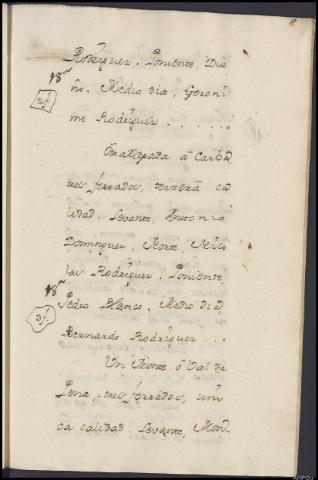 8
Rodriguez. Poniente, Due
18
ño. Medio dia, Geroni
2f
mo Rodriguez......
Otra
tres ferrados, tercera ca
lidad. Levante, Antonio
Dominguez, Norte Nico
las Rodriguez. Poniente,
18
Pedro Blanco. Medio dia,
3f.
Bernardo Rodriguez...
Un Monte ó Val da
Pena, tres ferrados, uni
ca calidad. Levante, Mon-